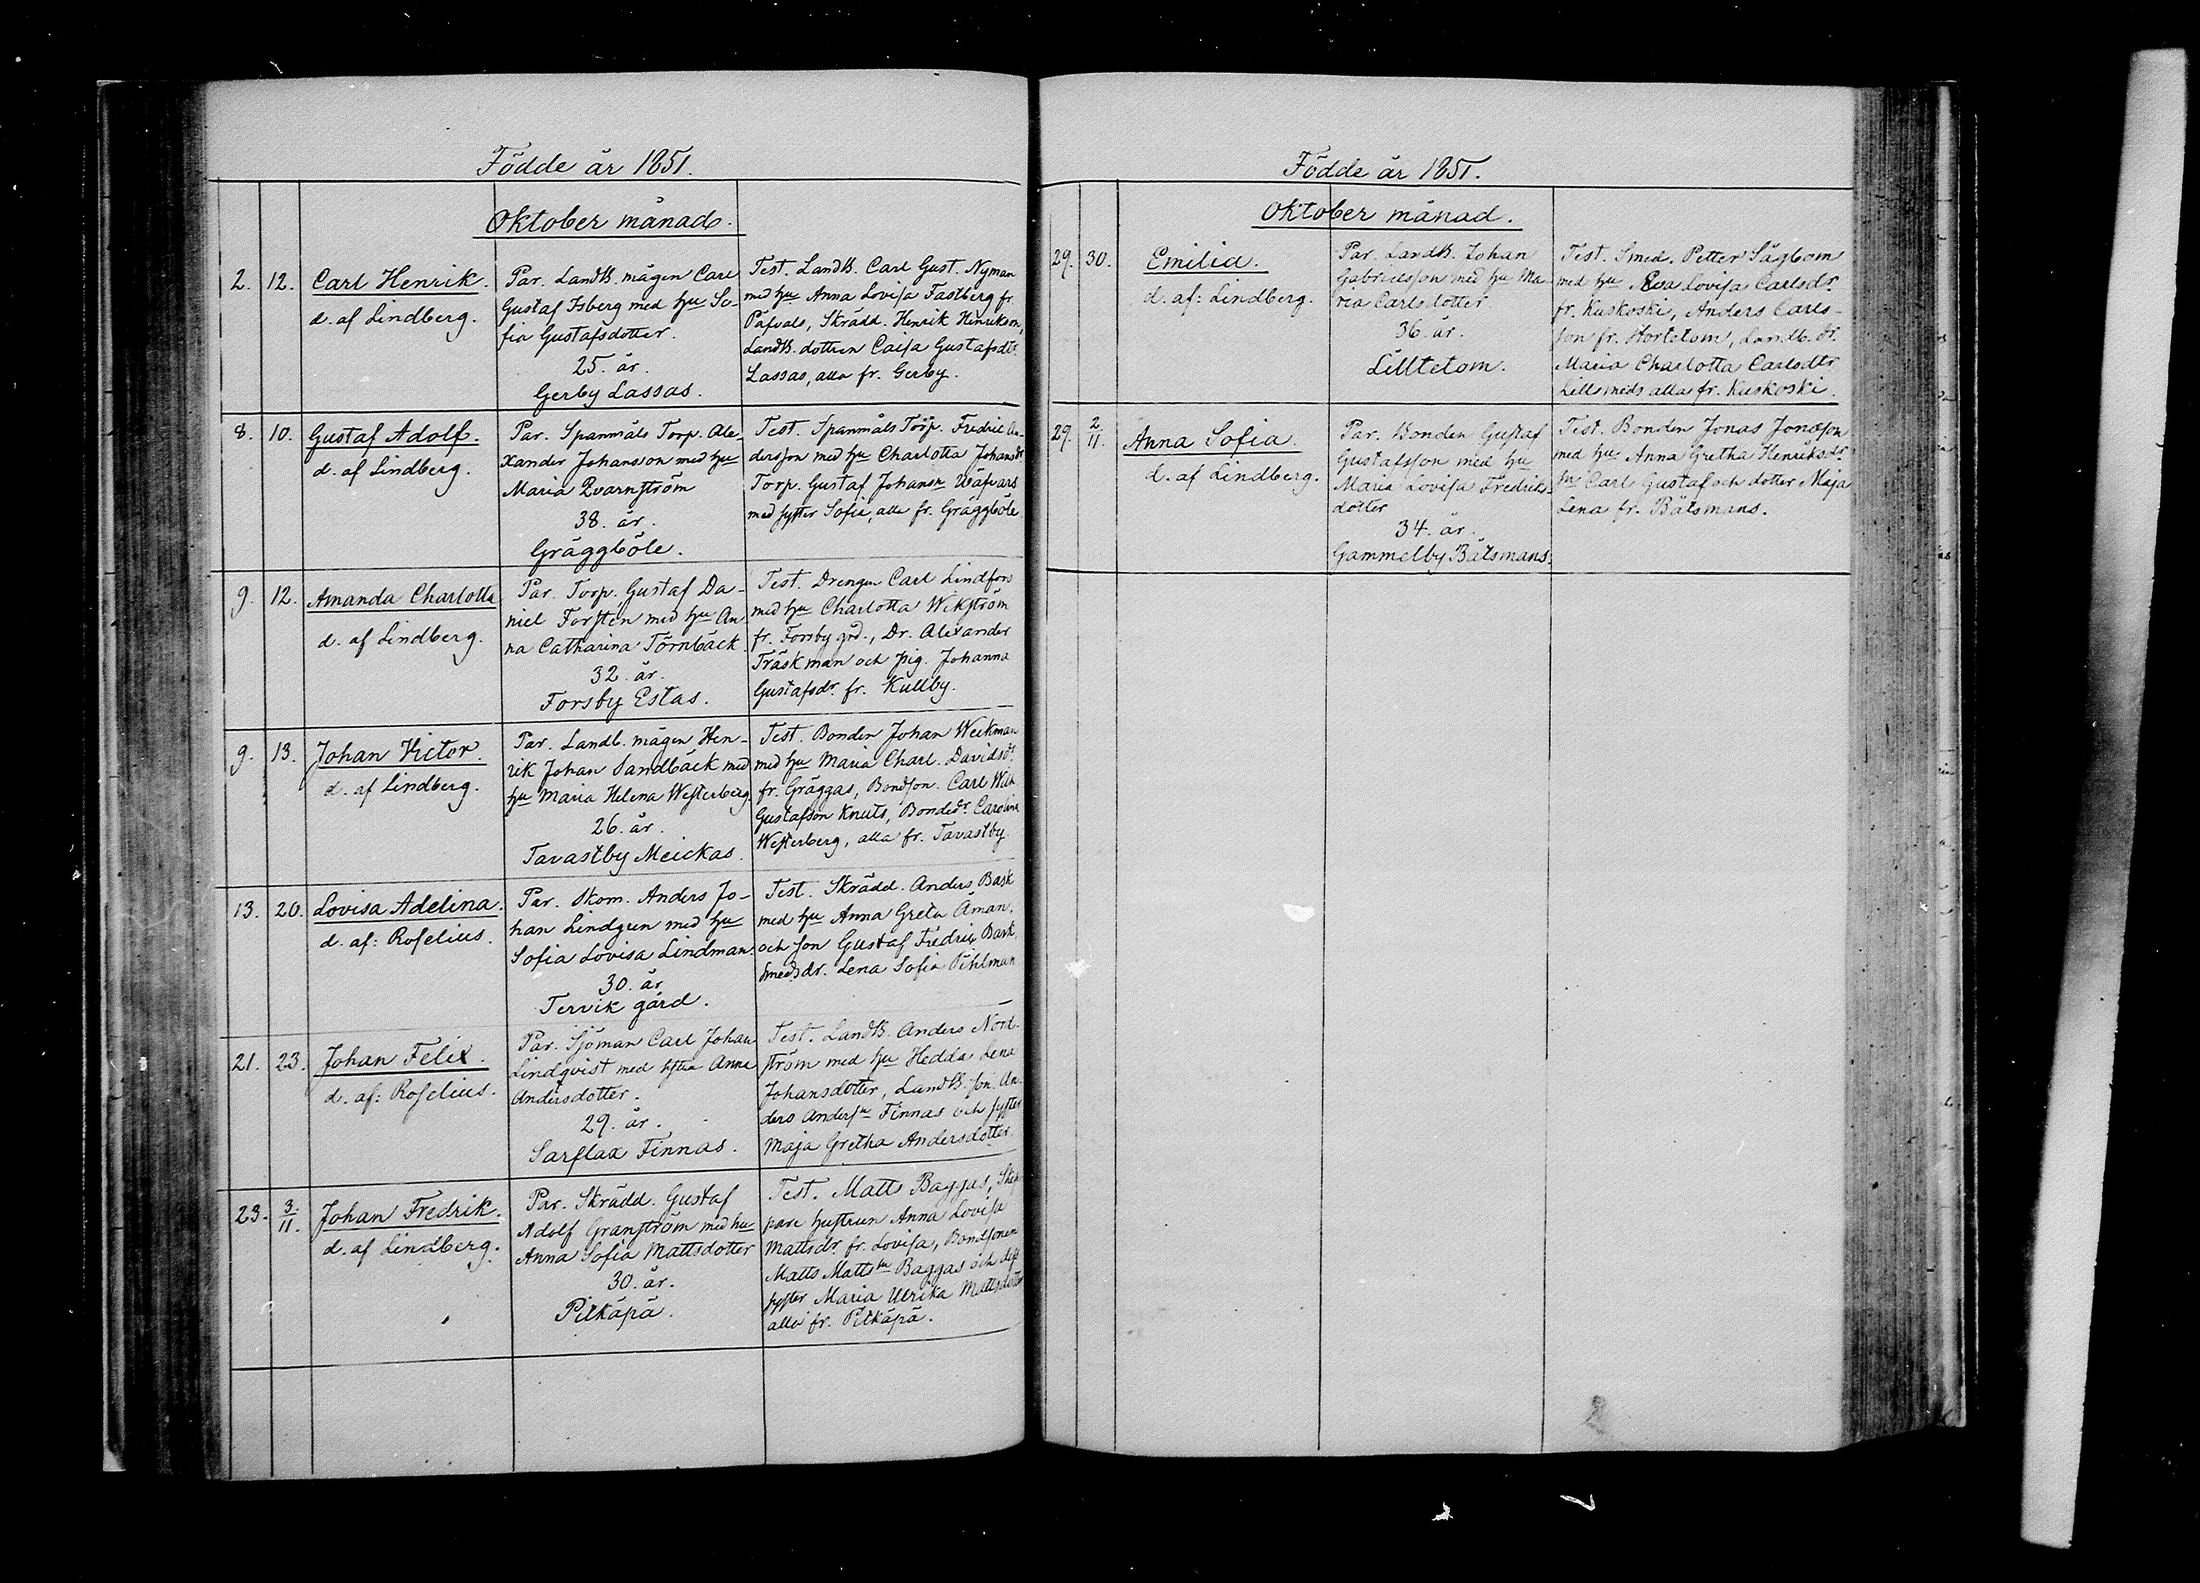 Födde år 1851.
Oktober månad.
2. 12. Carl Henrik.
d. af Lindberg.
Par. Landb. mågen Carl
Gustaf Isberg med hu So-
fia Gustafsdotter.
25. år.
Gerby Lassas.
Test. Landb. Carl Gust. Nyman
med hu Anna Lovisa Fastberg fr.
Påfvals, Skrädd. Henrik Hinrikson,
Landb. dottren Caisa Gustafsdtr
Lassas, alla fr. Gerby.
8. 10. Gustaf Adolf.
d. af Lindberg.
Par. Spanmåls Torp. Ale-
xander Johansson med hu
Maria Qvarnström
38. år.
Gräggböle.
Test. Spanmåls Torp. Fredric An-
dersson med hu Charlotta Johansdr
Torp. Gustaf Johansn Wäfvars
med syster Sofia, alla fr. Gräggböle
9. 12. Amanda Charlotta
d. af Lindberg.
Par. Torp. Gustaf Da-
niel Forsten med hu An
na Catharina Törnbäck.
32. år.
Forsby Estas.
Test. Drengen Carl Lindfors
med hu Charlotta Wikström
fr. Forsby grd., Dr. Alexander
Träskman och pig. Johanna
Gustafsdr. fr. Kullby.
9. 13. Johan Victor.
d. af Lindberg.
Par. Landb. mågen Hen-
rik Johan Sandbäck med
hu Maria Helena Westerberg.
26. år.
Tavastby Meickas.
Test. Bonden Johan Weckman
med hu Maria Charl. Davidsdr.
fr. Gräggas, Bondson. Carl Wilh
Gustafson Knuts, Bondedr. Carolina
Westerberg, alla fr. Tavastby.
13. 20. Lovisa Adelina.
d. af: Roselius.
Par. Skom. Anders Jo-
han Lindgren med hu
Sofia Lovisa Lindman.
30. år
Tervik gård.
Test. Skrädd. Anders Bask
med hu Anna Greta Åman,
och son Gustaf Fredric Bask.
Smedsdr. Lena Sofia Pihlman
21. 23. Johan Felix.
d. af: Roselius.
Par. Sjöman Carl Johan
Lindqvist med hstru Anna
Andersdotter.
29. år.
Sarflax Finnas.
Test. Landb. Anders Nord-
ström med hu Hedda Lena
Johansdotter, Landb. son. An-
ders Andersn Finnas och syster
Maja Gretha Andersdotter.
23. 3./11. Johan Fredrik.
d. af Lindberg.
Par. Skrädd. Gustaf
Adolf Granström med hu
Anna Sofia Mattsdotter
30. år.
Pitkäpä.
Test. Matts Baggas, Skep
pare hustrun Anna Lovisa
Mattsdr. fr. Lovisa, Bondsonen
Matts Mattsn Baggas och dess
syster Maria Ulrika Mattsdotter
alla fr. Pitkäpä.
Födde år 1851.
Oktober månad.
29. 30. Emilia.
d. af: Lindberg.
Par. Landb. Johan
Gabrielsson med hu Ma-
ria Carlsdotter
36. år.
Lilltetom.
Test. Smed. Petter Sågbom
med hu Eva Lovisa Carlsdr.
fr. Kuskoski, Anders Carls-
son fr. Hortetom, Landb. dr.
Maria Charlotta Carlsdtr
Lillsmeds alla fr. Kuskoski.
29. 2./11. Anna Sofia.
d. af Lindberg.
Par. Bonden Gustaf
Gustafsson med hu
Maria Lovisa Fredriks-
dotter
34. år.
Gammelby Båtsmans.
Test. Bonden Jonas Jonasson
med hu Anna Gretha Henriksdr.
sn Carl Gustaf och dotter Maja
Lena fr. Båtsmans.